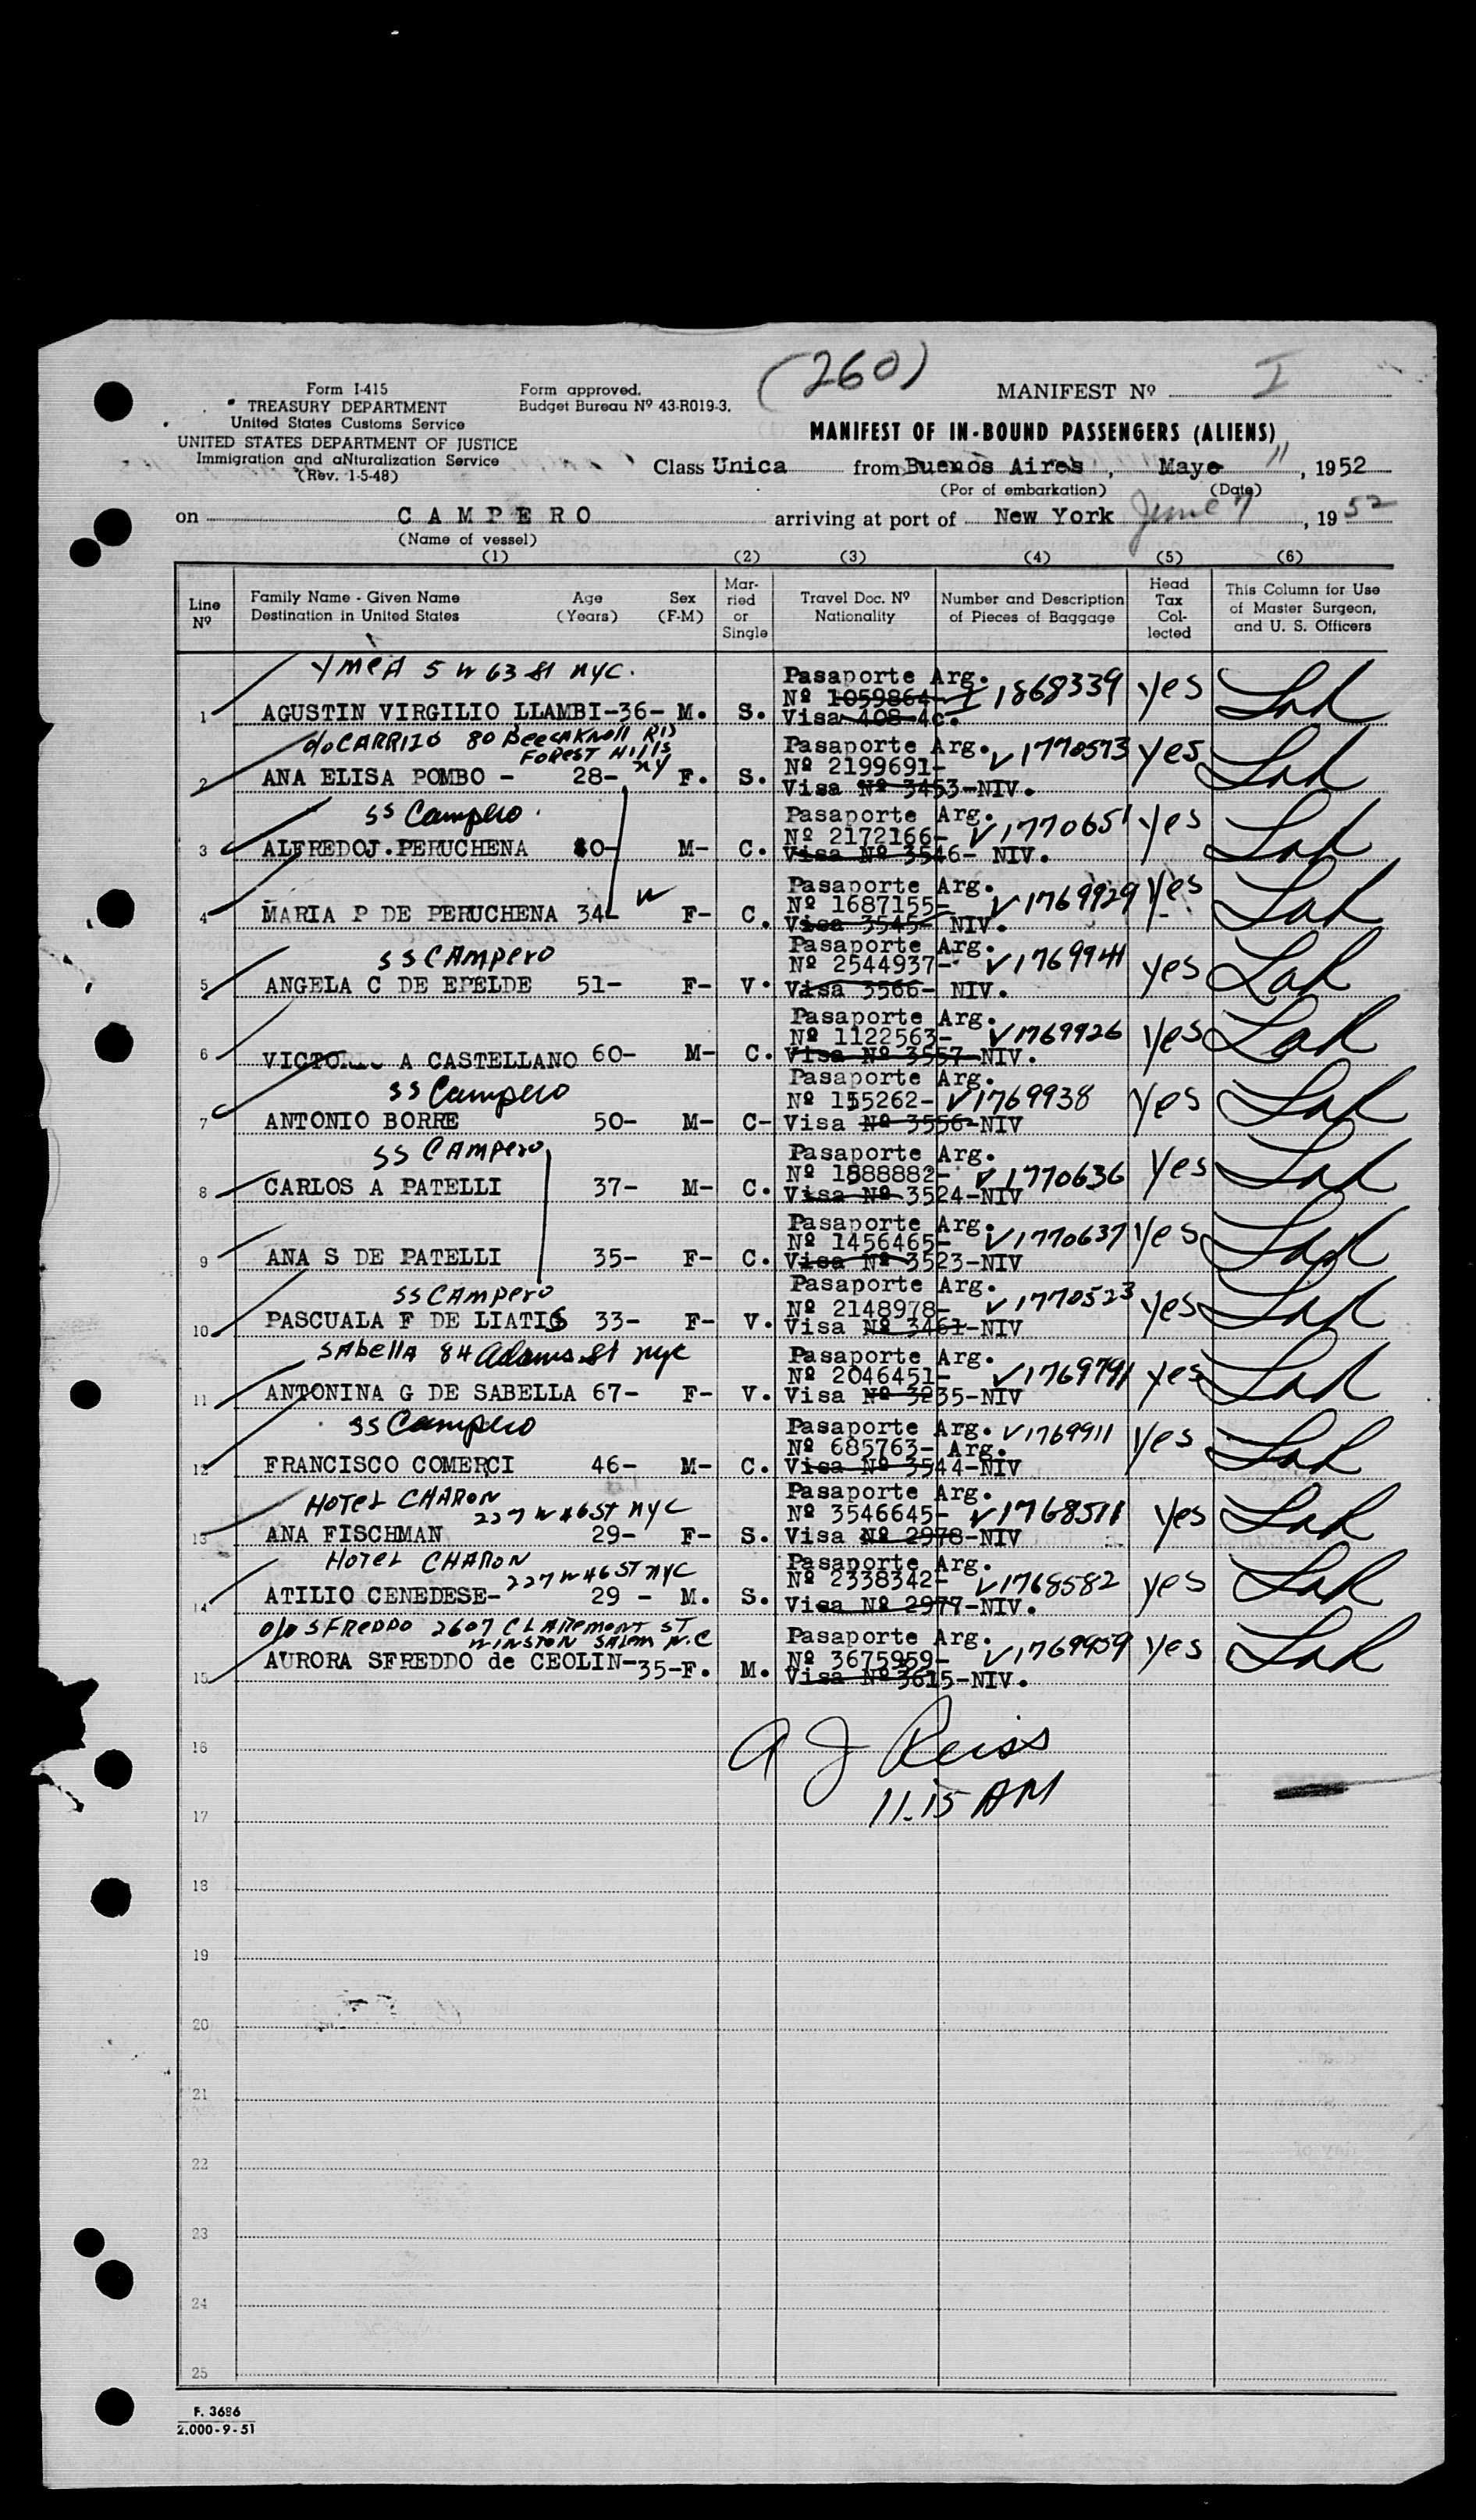 (260)
Form I-415
TREASURY DEPARTMENT
United States Customs Service
UNITED STATES DEPARTMENT OF JUSTICE
Immigration and aNturalization Service
(Rev. 1-5-48)
Form approved.
Budget Bureau Nº 43-R019-3.
MANIFEST Nº I
MANIFEST OF IN-BOUND PASSENGERS (ALIENS)
Class Unica from Buenos Aires, Mayo 11, 1952
(Por of embarkation) (Date)
on CAMPERO arriving at port of New York June 7, 1952
(Name of vessel)
(1) (2) (3) (4) (5) (6)
Line Nº
Family Name - Given Name
Destination in United States
Age (Years)
Sex (F-M)
Mar-ried or Single
Travel Doc. Nº Nationality
Number and Description of Pieces of Baggage
Head Tax Col-lected
This Column for Use of Master Surgeon, and U. S. Officers
YMCA 5 W 63 St NYC.
Pasaporte Arg.
Nº 1059864- I 1868339 yes
1 AGUSTIN VIRGILIO LLAMBI-36- M. S. Visa 408-4c.
c/o CARRIZO 80 Beechknoll RD
FOREST HILLS NY
Pasaporte Arg. V1770573 yes
Nº 2199691-
2 ANA ELISA POMBO - 28- F. S. Visa Nº 3453-NIV.
SS Campero.
Pasaporte Arg.
Nº 2172166- V1770651 yes
3 ALFREDOJ.PERUCHENA 40- M- C. Visa Nº 3546- NIV.
Pasaporte Arg.
Nº 1687155- V1769929 yes
4 MARIA P DE PERUCHENA 34- F- C. Visa 3545- NIV.
SS CAmpero
Pasaporte Arg.
Nº 2544937- V1769941 yes
5 ANGELA C DE EPELDE 51- F- V. Visa 3566- NIV.
Pasaporte Arg.
Nº 1122563- V1769926 yes
6 VICTORIO A CASTELLANO 60- M- C. Visa Nº 3557-NIV.
SS Campero
Pasaporte Arg.
Nº 155262- V1769938 yes
7 ANTONIO BORRE 50- M- C- Visa Nº 3556-NIV
SS CAmpero
Pasaporte Arg.
Nº 1588882- V1770636 yes
8 CARLOS A PATELLI 37- M- C. Visa Nº 3524-NIV
Pasaporte Arg.
Nº 1456465- V1770637 yes
9 ANA S DE PATELLI 35- F- C. Visa Nº 3523-NIV
SS CAmpero
Pasaporte Arg.
Nº 2148978- V1770523 yes
10 PASCUALA F DE LIATIS 33- F- V. Visa Nº 3461-NIV
SAbellA 84 Adams St nyc
Pasaporte Arg.
Nº 2046451- V1769791 yes
11 ANTONINA G DE SABELLA 67- F- V. Visa Nº 3235-NIV
SS Campero
Pasaporte Arg. V1769911 yes
Nº 685763- Arg.
12 FRANCISCO COMERCI 46- M- C. Visa Nº 3544-NIV
HOTEL CHARON
227 W 46 ST NYC
Pasaporte Arg.
Nº 3546645- V1768511 yes
13 ANA FISCHMAN 29- F- S. Visa Nº 2978-NIV
HOTEL CHARON
227 W 46 ST NYC
Pasaporte Arg.
Nº 2338342- V1768582 yes
14 ATILIO CENEDESE- 29 - M. S. Visa Nº 2977-NIV.
c/o SFREDDO 2607 CLAREMONT ST
WINSTON SALEM N.C
Pasaporte Arg.
Nº 3675959- V1769959 yes
15 AURORA SFREDDO de CEOLIN-35-F. M. Visa Nº 3615-NIV.
A J Reiss
16
11.15 AM
17
18
19
20
21
22
23
24
25
F. 3686
2.000-9-51